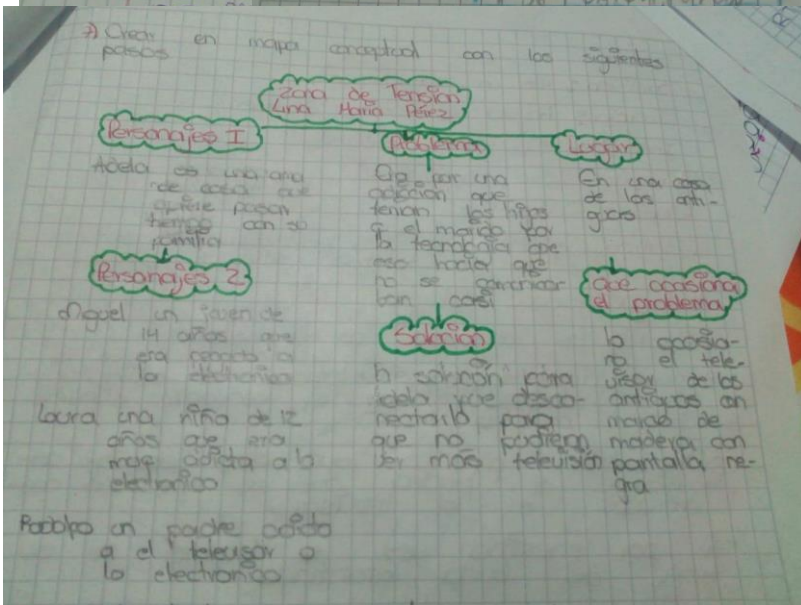 7) Crear en mapa conceptual con los siguientes
pasos
Zona de Tension
Lina Maria Pérez
Personajes I
Adela es una ama
de casa que
quiere pasar
tiempo con so
familia
Personajes 2
Miguel un joven de
14 años que
era
lo electronico
Laura una niña de 12
años que era
muy adicta a lo
electronico
Rodolfo un padre
a el televisor o
lo electronico
Problema
Que por una
adicción que
tenian los hijos
y el marido por
la tecnologia que
eso hacia que
no se comunicar
ban casi
Solocion
la solución para
Adela fue desco-
nectarlo para
que no pudieran
ver mas televisión
Lugar
En una casa
de las anti-
guas
que ocasiona
el problema
lo ocasio-
no el tele-
visor de los
antiguos con
marco de
madera con
pantalla ne-
gra